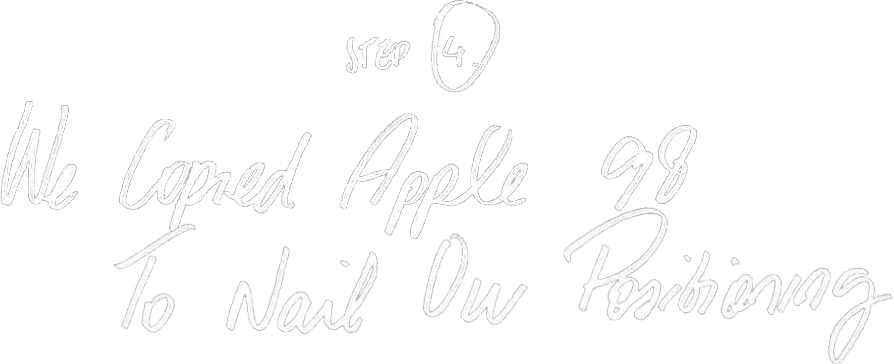 STEP 4.
We Copied Apple 98
To Nail Our Positioning